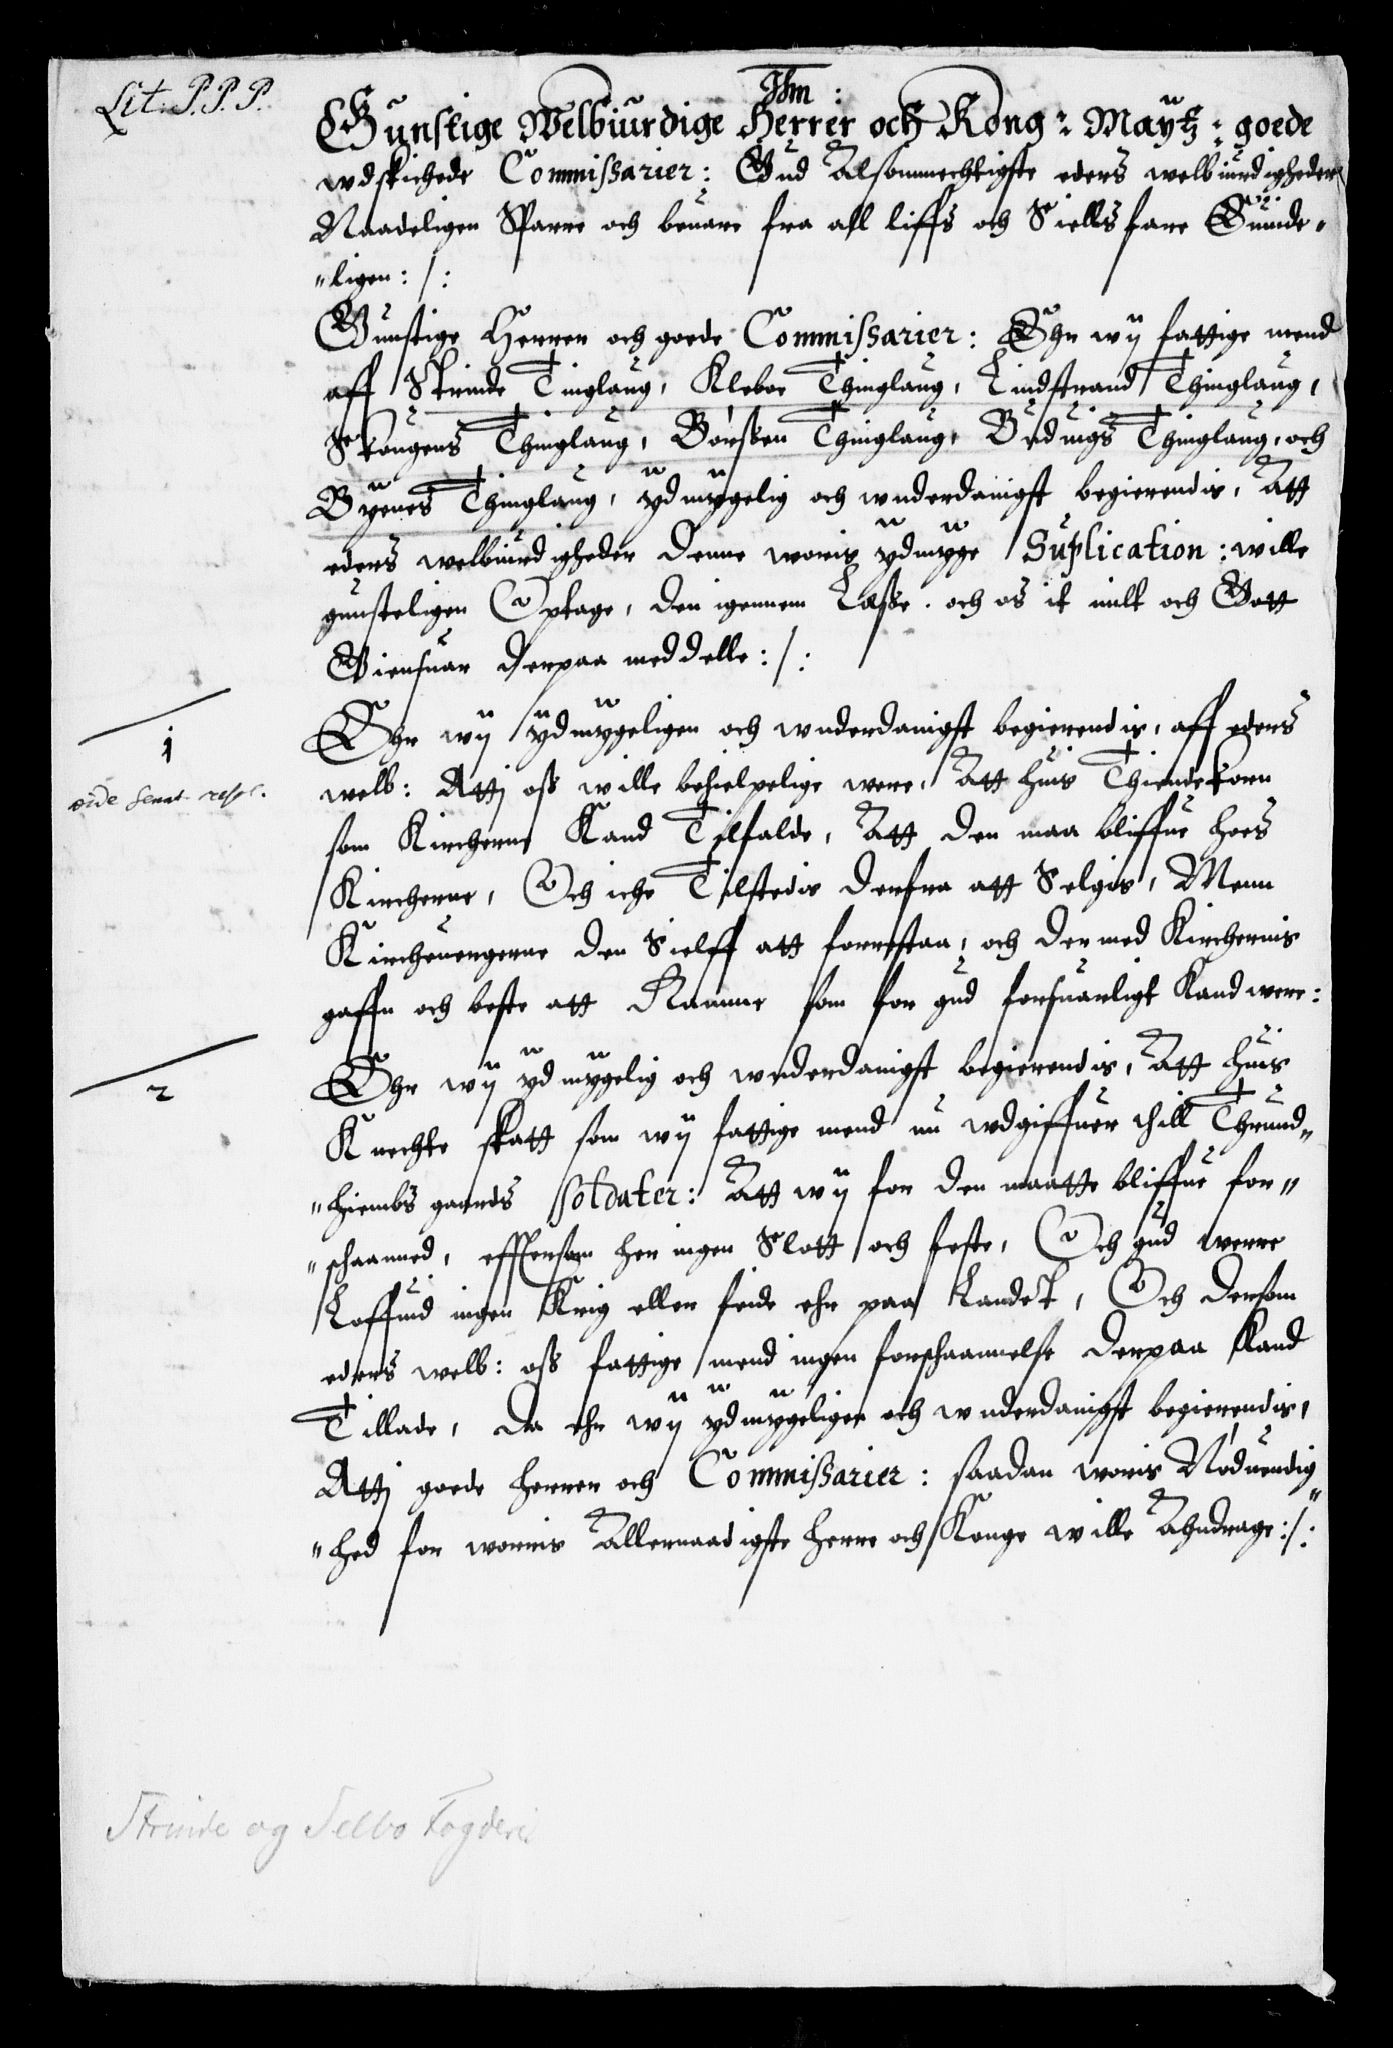 Lit: P.P.P.
Jhm :
Gunstige Welbiurdige Herrer och Kong: Maytz: goede
wdskichede Commissarier: Gud Alsommechtigste eders welbiurdigheder
Naadeligen Sparre och beuare fra all liffs och Siells fare Gunde„
„ligen: /:
Gunstige Herrer och goede Commissarier: Ehr wÿ fattige mend
aff Strinde Tinglaug, Kleboe Thinglaug, Lindstrand Thinglaug,
Stougens Thinglaug, Børssen Thinglaug, Buduigs Thinglaug, och
Byenes Thinglaug, ydmygelig och wnderdanigst begierendis, Att
eders welbiurdigheder denne woris ydmyge Suplication: wille
gunsteligen Optage, den igennem Lasse. och os it milt och Gott
Giensuar derpaa meddelle: /:
1
vide Gener. resol.
Ehr wÿ ydmygeligen och wnderdanigst begierendis, aff eders
welb: Attj oss wille behielpelige were, Att huis Thiendekorn
som Kircherne Kand Tilfalde, Att den maa bliffue hoes
Kircherne, Och iche Tilstedis derfra att Selgis, Menn
Kircheuergerne den Sielff att forrestaa, och der med Kirchernis
gaffn och beste att Ramme som for gud forsuarligt Kand were:
2
Ehr wÿ ydmygelig och wnderdanigst begierendis, Att huis
Knechte skatt som wÿ fattige mend nu wdgiffuer thill Thrund„
„hiembs gaards soldater: Att wÿ for den maatte bliffue for„
„schaanned, effttersom her ingen Slott och feste, Och gud werre
Loffuid ingen Krig eller feide ehr paa Landet, Och dersom
eders welb: oss fattige mend ingen forschaannelse derpaa Kand
Tillade, da ehr wÿ ydmygeligen och wnderdanigst begierendis,
Attj goede herrer och Commissarier: saadan woris Nøduendig„
„hed for worris Allernaadigste herre och Konge wille Ahndrage: /:
Strinde og Selbo Fogderi